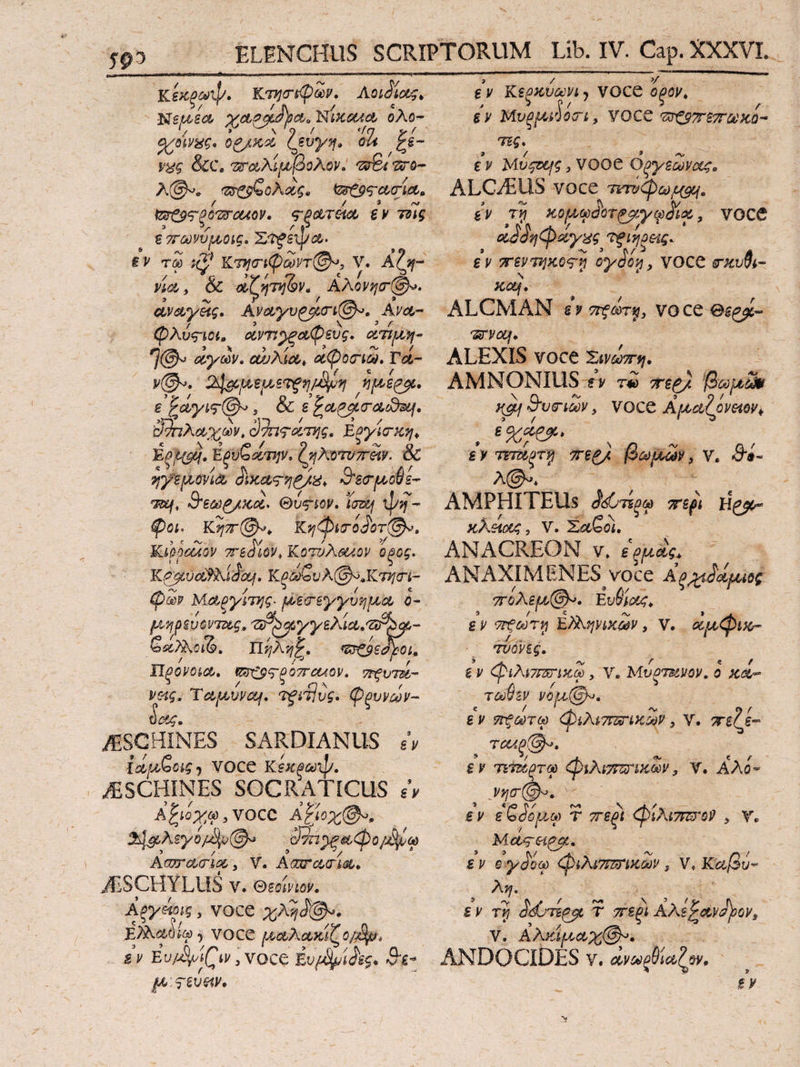 590 ELENCHUS SCRIPTORUM Lib. IV. Cap. XXXVI.
Κέκροψ. Κτησιφῶν. Λοιδίας.
Νεμέα χαράδρα. Νίκαια ὁλο-
σχοίνους. ὀργικὰ ζεύγη. ὅτι ξέ-
νους &c. παλίμβολον. περίπο-
λος. προβολάς. προστασία.
προστρόπαιον. στρατεία ἐν τοῖς
ἐπωνύμοις. Στρέψα.
ἐν τῷ κτ Κτησιφῶντος, V. Αζη-
νία, & ἀζήτητον. Ἀλόνησος.
ἀναγεις. Ἀναγυράσιος. Ἀνα-
φλύστιοι. ἀντιγραφεύς. ἀτίμη-
τος ἀγών. αὐλία. ἀφοσιῶ. Γά-
νος. Διαμεμετρημένη ἡμέρα.
ἐξάγιστος, & ἐξαράσασθαι.
ἐπιλαχών, ἐπιστάτης. Ἐργίσκη.
Ἑρμαῖ. Ἐρυβάτην. ζηλοτυπεῖν. &
ἡγεμονία δικαστηρίου. θεσμοθέ-
ται. θεωρικά. Θύστιον. ἴσαι ψῆ-
φοι. Κῆπος. Κηφισόδοτος.
Κιρραῖον πεδίον. Κοτύλαιον ὄρος.
Κραυαλλίδαι. Κρωβύλος. Κτησι-
φῶν Μαργίτης. μεσεγγύημα ὁ-
μηρεύοντας. παραγγελία. παρα-
βάλλοις. Πήληξ. πρόεδροι.
Πρόνοια. προστρόπαιον. πρυτά-
νεις. Ταμύναι. τριτλυς. Φρυνών-
δας.
ÆSCHINES SARDIANUS ἐν
ἰάμβοις, voce Κέκροψ.
ÆSCHINES SOCRATICUS ἐν
Ἀξιόχῳ, voce Ἀξίοχος.
Διαλεγόμενος ἐπιγραφομένῳ
Ἀσπασία, V. Ἀσπασία.
ÆSCHYLUS v. Θεοίνιον.
Ἀργείοις, voce χλῆδος.
Ἐλλαδίῳ, voce μαλακίζομαι.
ἐν Εὐμενίσιν, voce Εὐμενίδες. θε-
μιστεύειν.
ἐν Κερκύωνι, voce ὄρον.
ἐν Μυρμιδόσι, voce προπεπωκό-
τες.
ἐν Μύσταις, vooe Ὀργεῶνας.
ALCÆUS voce τετύφωμαι.
ἐν τῇ κομῳδοτραγῳδίᾳ, voce
ἀδδηφάγους τριήρεις.
ἐν πεντηκοστῇ ὀγδόῃ, voce σκυθι-
καί.
ALCMAN ἐν πρώτῃ, voce Θερά-
πναι.
ALEXIS voce Σινώπη.
AMNONIUS ἐν τῷ περὶ βωμῶν
καὶ θυσιῶν, voce Ἀμαζόνειον.
ἐσχάρα.
ἐν τετάρτῃ περὶ βωμῶν, v. θό-
λος.
AMPHITEUs δευτέρῳ περὶ Ἡρα-
κλείας, v. Σαβοί.
ANACREON v. ἑρμάς.
ANAXIMENES voce Ἀρχιδάμιος
πόλεμος. Εὐθίας.
ἐν πρώτῃ Ἑλληνικῶν, v. ἀμφικ-
τύονες.
ἐν φιλιππικῷ, v. Μύρτανον. ὁ κά-
τωθεν νόμος.
ἐν πρώτῳ φιλιππικῶν, v. πεζέ-
ταιρος.
ἐν τετάρτῳ φιλιππικῶν, v. Ἀλό-
νησος.
ἐν ἑβδόμῳ τ περὶ φίλιππον, v.
Μάστειρα.
ἐν ὀγδόῳ φιλιππικῶν, v. Καβύ-
λη.
ἐν τῇ δευτέρᾳ τ περὶ Ἀλέξανδρον,
v. Ἀλκίμαχος.
ANDOCIDES v. ἀνωρθίαζον.
ἐν